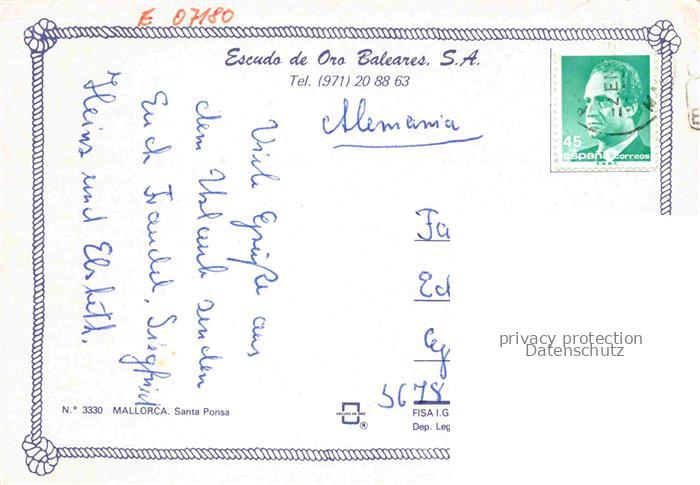 E 07180
Escudo de Oro Baleares, S.A.
Tel. (971) 20 88 63
Alemania
45
españa correos
F.N.M.T.
Viele Grüße aus
dem Urlaub senden
Euch Traudel, Siegfried
Heinz und Elsbeth.
Fa
Ed
privacy protection
Datenschutz
5678
N.° 3330 MALLORCA. Santa Ponsa
ESCUDO DE ORO
®
FISA I.G
Dep. Leg